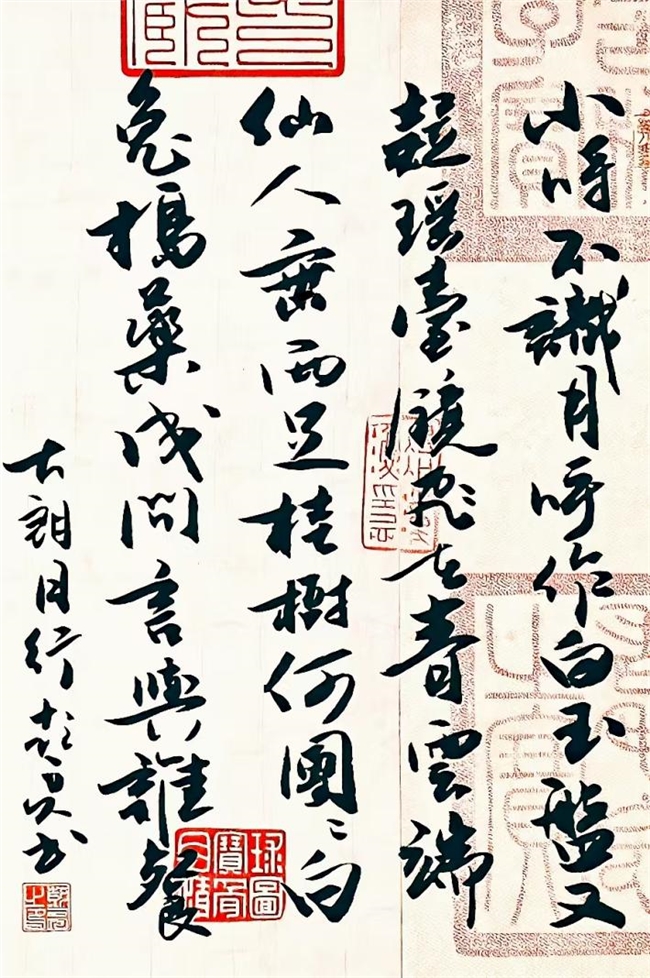 小時不識月呼作白玉盤又
疑瑤臺鏡飛在青雲端
仙人垂兩足桂樹何團〻白
兔搗藥成問言與誰餐
古朗月行 書